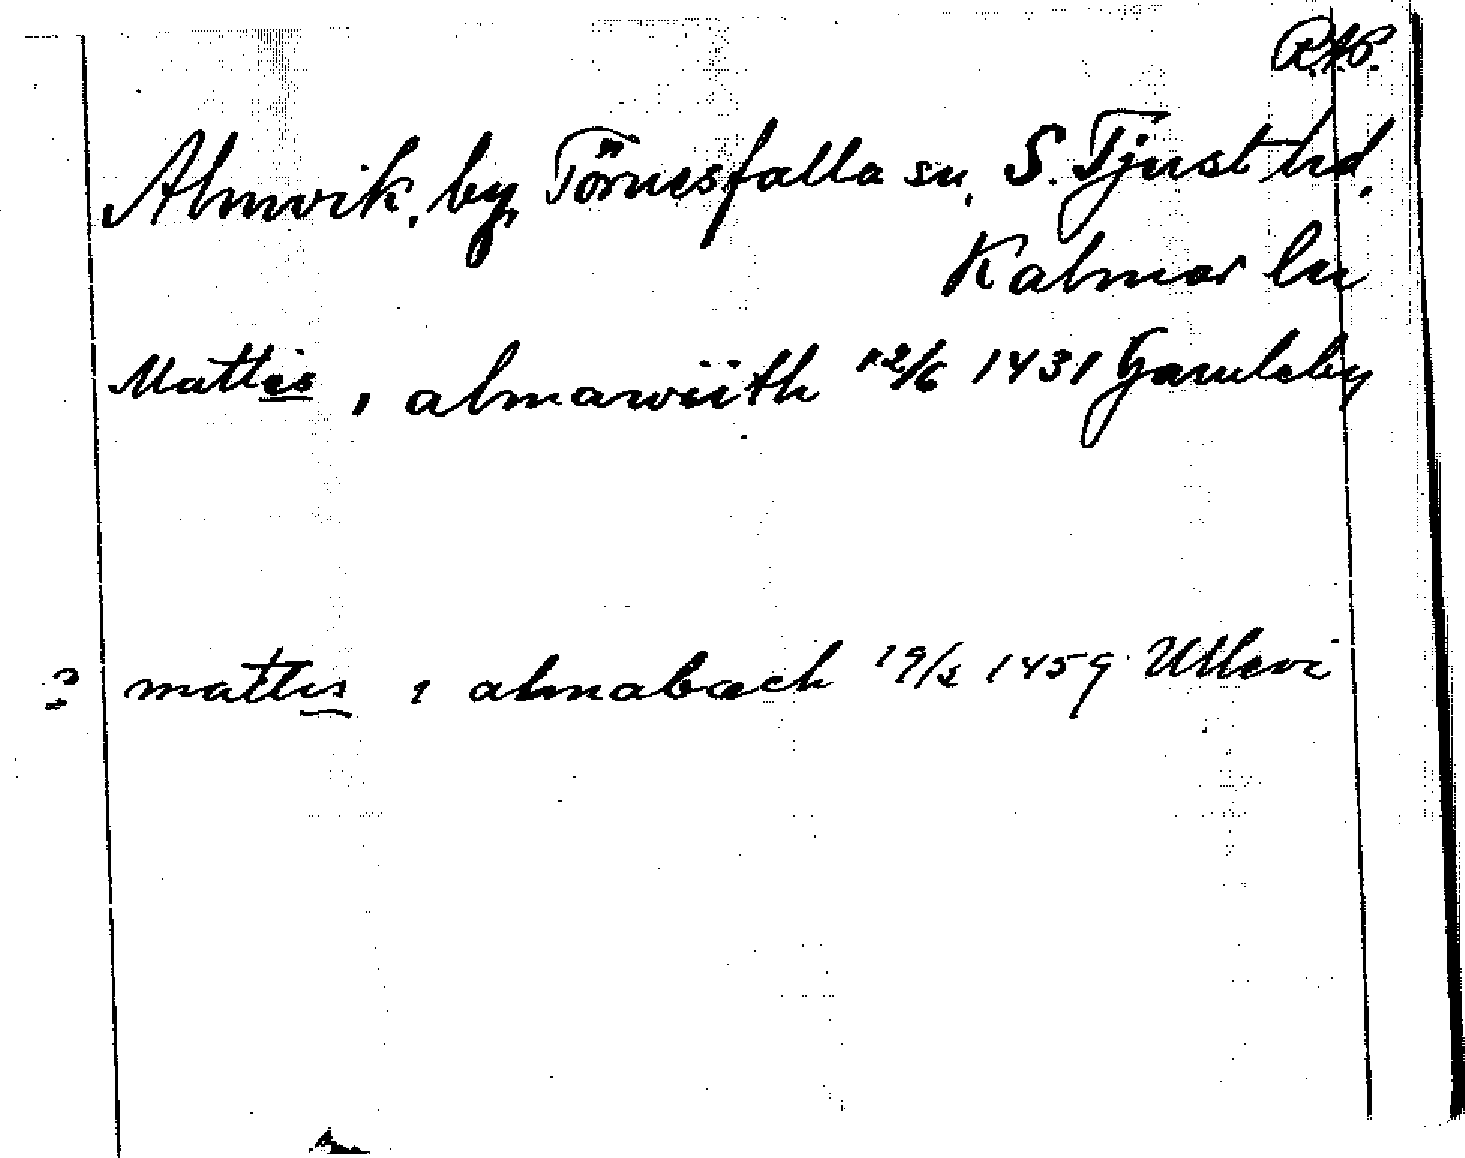 R.A.P.
Almvik, by, Törnesfalla sn, S. Tjust hd,
Kalmar län
Mattis, i almawiith 12/6 1431 Gamleby
? mattis i almabæck 19/5 1459 Ullevi